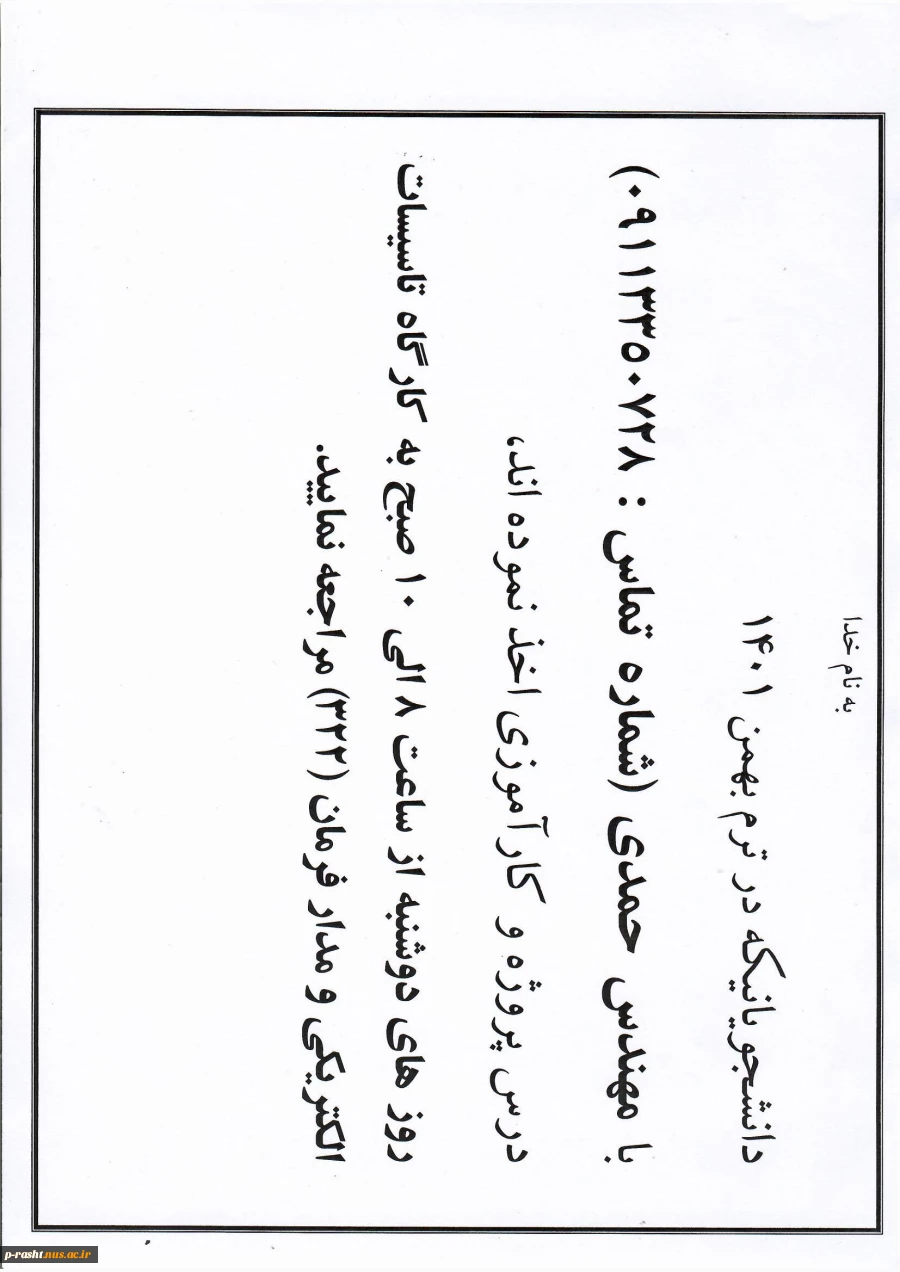 به نام خدا
دانشجویانیکه در ترم بهمن ۱۴۰۱
با مهندس حمدی (شماره تماس : ۰۹۱۱۳۳۵۰۷۲۸)
درس پروژه و کارآموزی اخذ نموده اند،
روز های دوشنبه از ساعت ۸ الی ۱۰ صبح به کارگاه تاسیسات
الکتریکی و مدار فرمان (۳۲۲) مراجعه نمایید.
p-rasht.nus.ac.ir